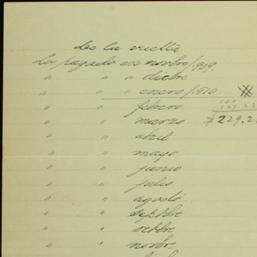 de la vuelta
Lo pagado en novbre/1909
" " " dicbre
" " " enero/1910
" " febrero
" " marzo $229.2
" " abril
" " mayo
" " junio
" " julio
" " agosto
" " septbre
" " octbre
" " novbre